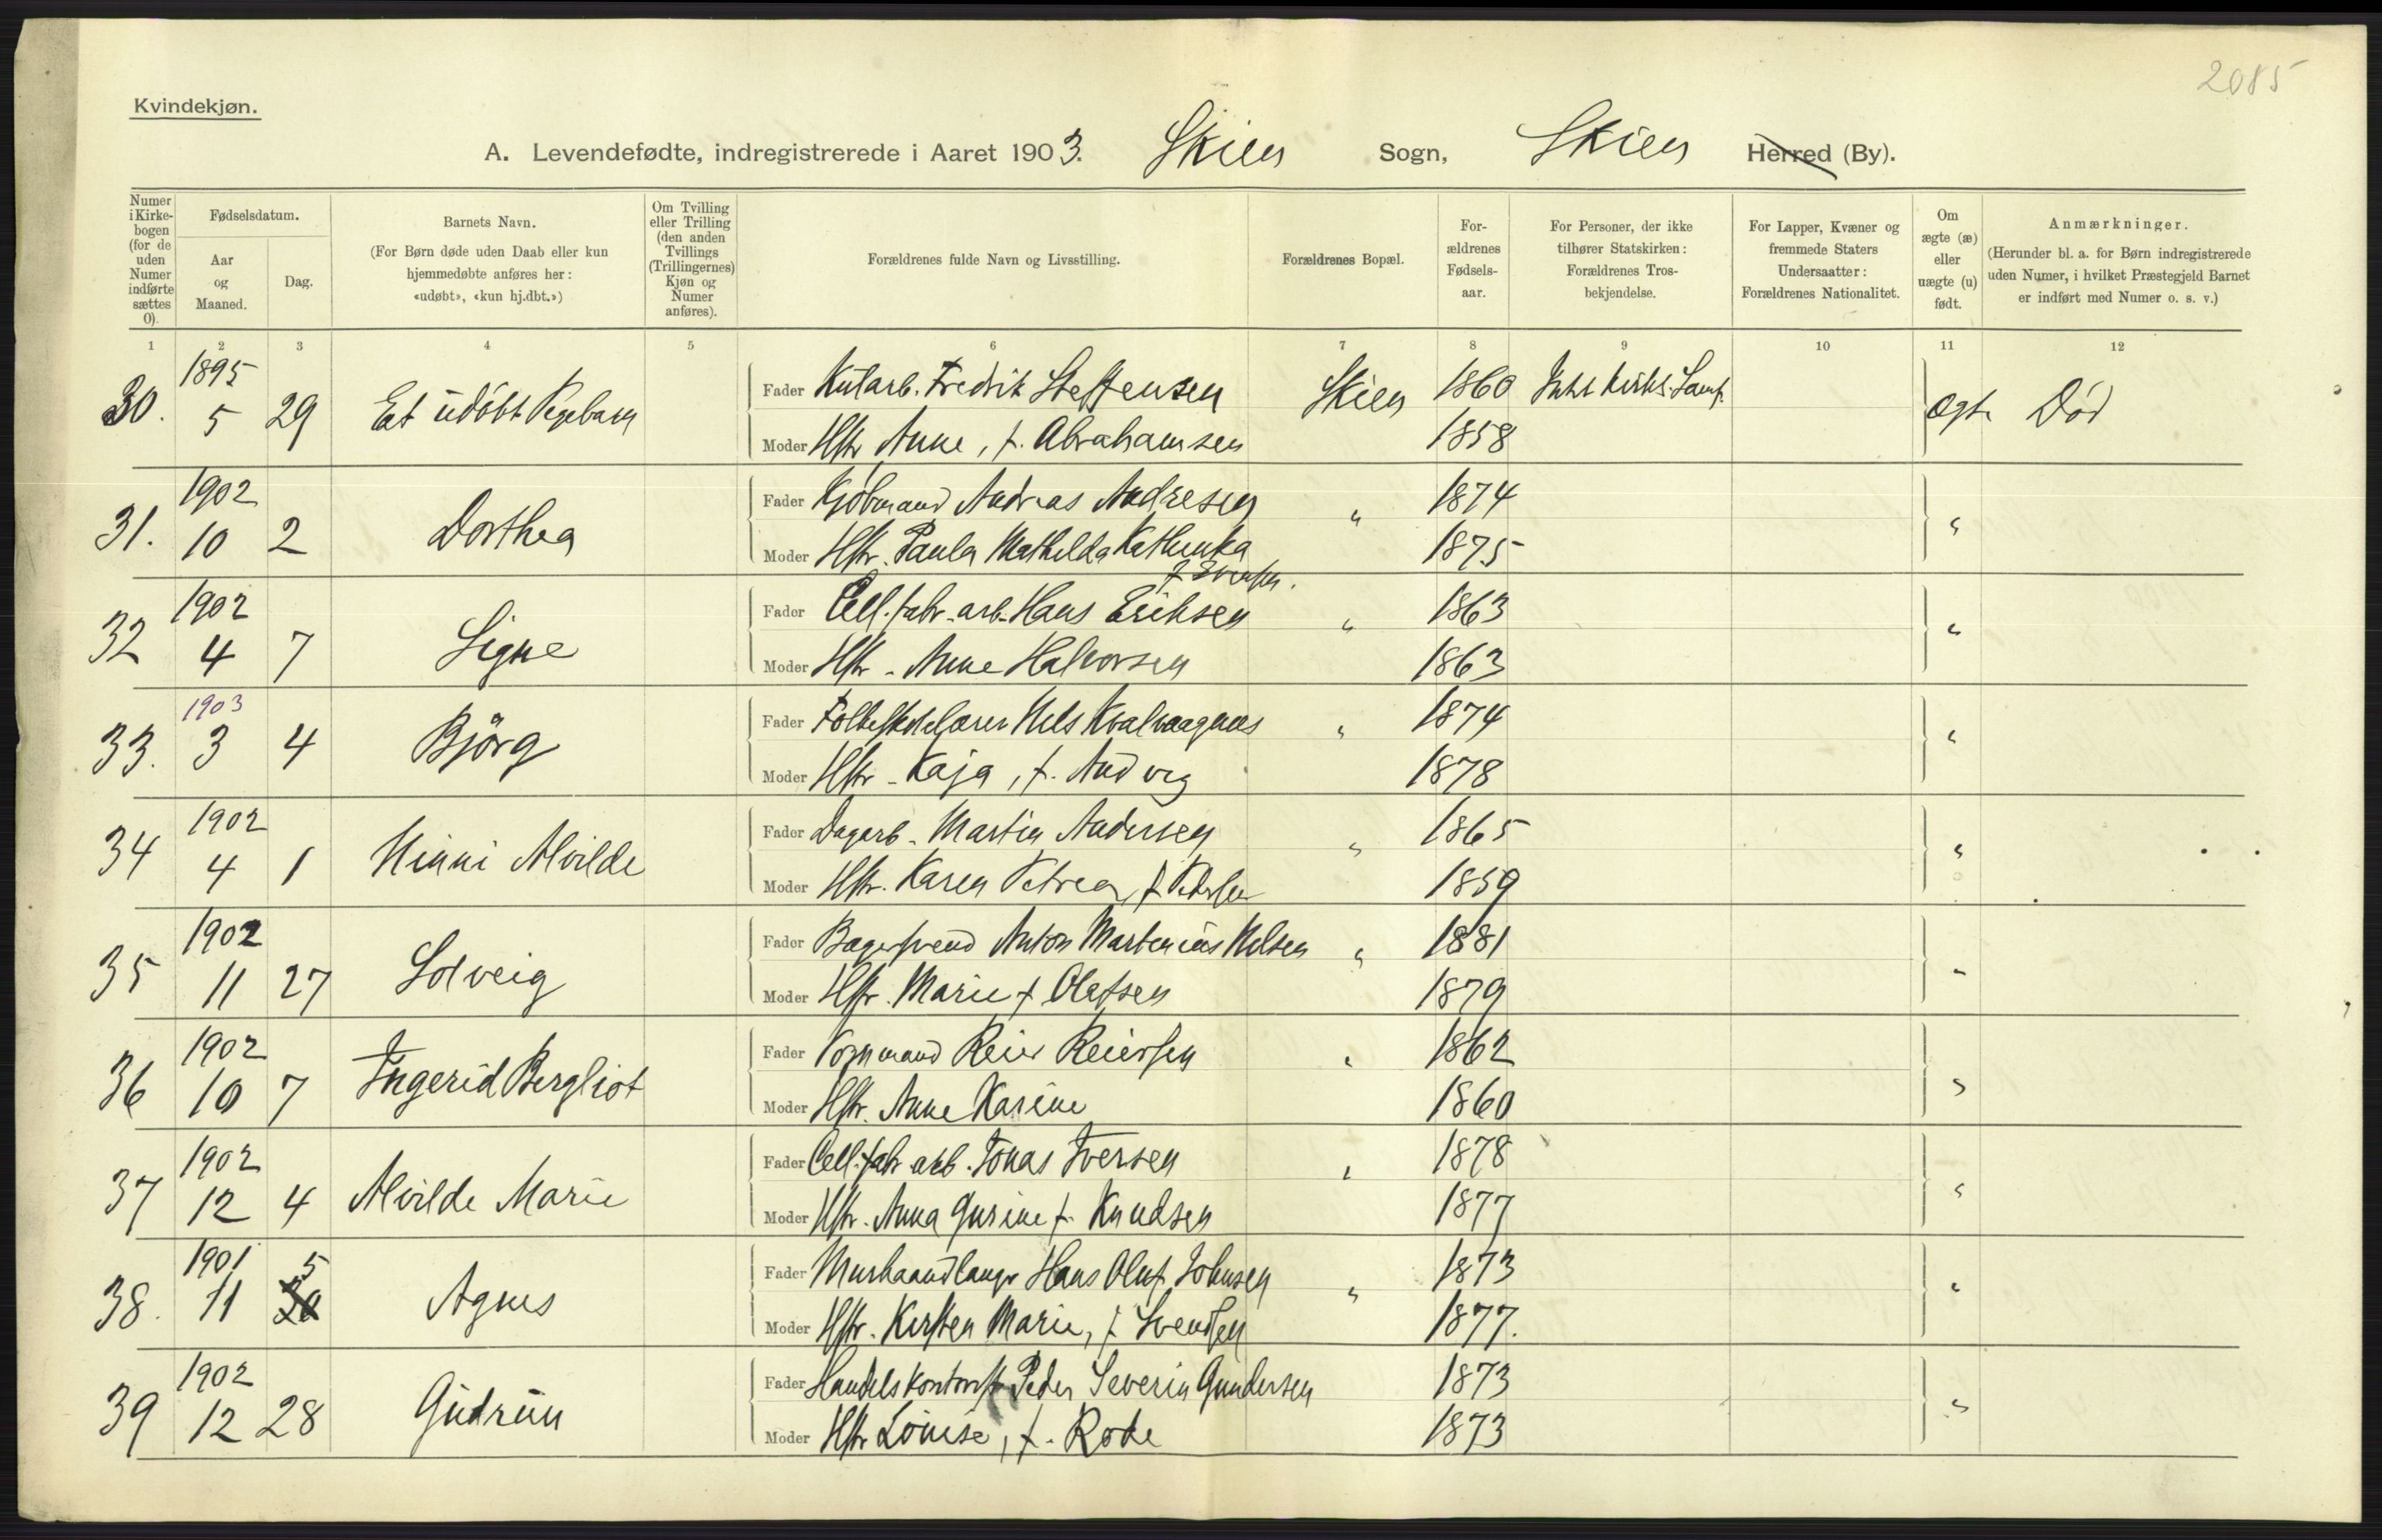 2085
Kvindekjøn.
A. Levendefødte, indregistrerede i Aaret 1903. Skien Sogn, Skien Herred (By).
Numer i Kirkebogen (for de uden Numer indførte sættes 0).
Fødselsdatum.
Aar og Maaned.
Dag.
Barnets Navn.
(For Børn døde uden Daab eller kun hjemmedøbte anføres her: «udøbt», «kun hj.dbt.»)
Om Tvilling eller Trilling (den anden Tvillings (Trillingernes) Kjøn og Numer anføres).
Forældrenes fulde Navn og Livsstilling.
Forældrenes Bopæl.
Forældrenes Fødselsaar.
For Personer, der ikke tilhører Statskirken: Forældrenes Trosbekjendelse.
For Lapper, Kvæner og fremmede Staters Undersaatter: Forældrenes Nationalitet.
Om ægte (æ) eller uægte (u) født.
Anmærkninger.
(Herunder bl. a. for Børn indregistrerede uden Numer, i hvilket Præstegjeld Barnet er indført med Numer o. s. v.)
1 2 3 4 5 6 7 8 9 10 11 12
30. 1895 5 29 Et udøbt Pigebarn
Fader Fredrik Steffensen Skien 1860 ægte Død
Moder Hstr Anne, f. Abrahamsen 1858
31. 1902 10 2 Dorthea
Fader Kjøbmand Andreas Andresen " 1874 "
Moder Hstr. Paula Mathilda Kathinka f. Evensen. 1875
32 1902 4 7 Signe
Fader Cell. fabr. arb. Hans Eriksen " 1863 "
Moder Hstr. Anne Halvorsen 1863
33. 1903 3 4 Bjørg
Fader Folkeskolelærer Nils Kvalvaagnes " 1874 "
Moder Hstr. Kaja, f. Andvig 1878
34 1902 4 1 Minni Alvilde
Fader Dagarb. Martin Andersen " 1865 "
Moder Hstr. Karen Petrea, f. Pedersen 1859
35 1902 11 27 Solveig
Fader Bagersvend Anton Martenius Nilsen " 1881 "
Moder Hstr. Marie f Olafsen 1879
36 1902 10 7 Ingerid Bergliot
Fader Vognmand Reier Reiersen " 1862 "
Moder Hstr. Anne Karine 1860
37 1902 12 4 Alvilde Marie
Fader Cell. fabr arb. Jonas Iversen " 1878 "
Moder Hstr. Anna Gurine f. Knudsen 1877
38. 1901 11 5 30 Agnes
Fader Murhaandlanger Hans Oluf Johnsen " 1873 "
Moder Hstr. Kirsten Marie, f. Svendsen 1877.
39 1902 12 28 Gudrun
Fader Handelskontorist Peder Severin Gundersen 1873 "
Moder Hstr Louise, f. Rode 1873